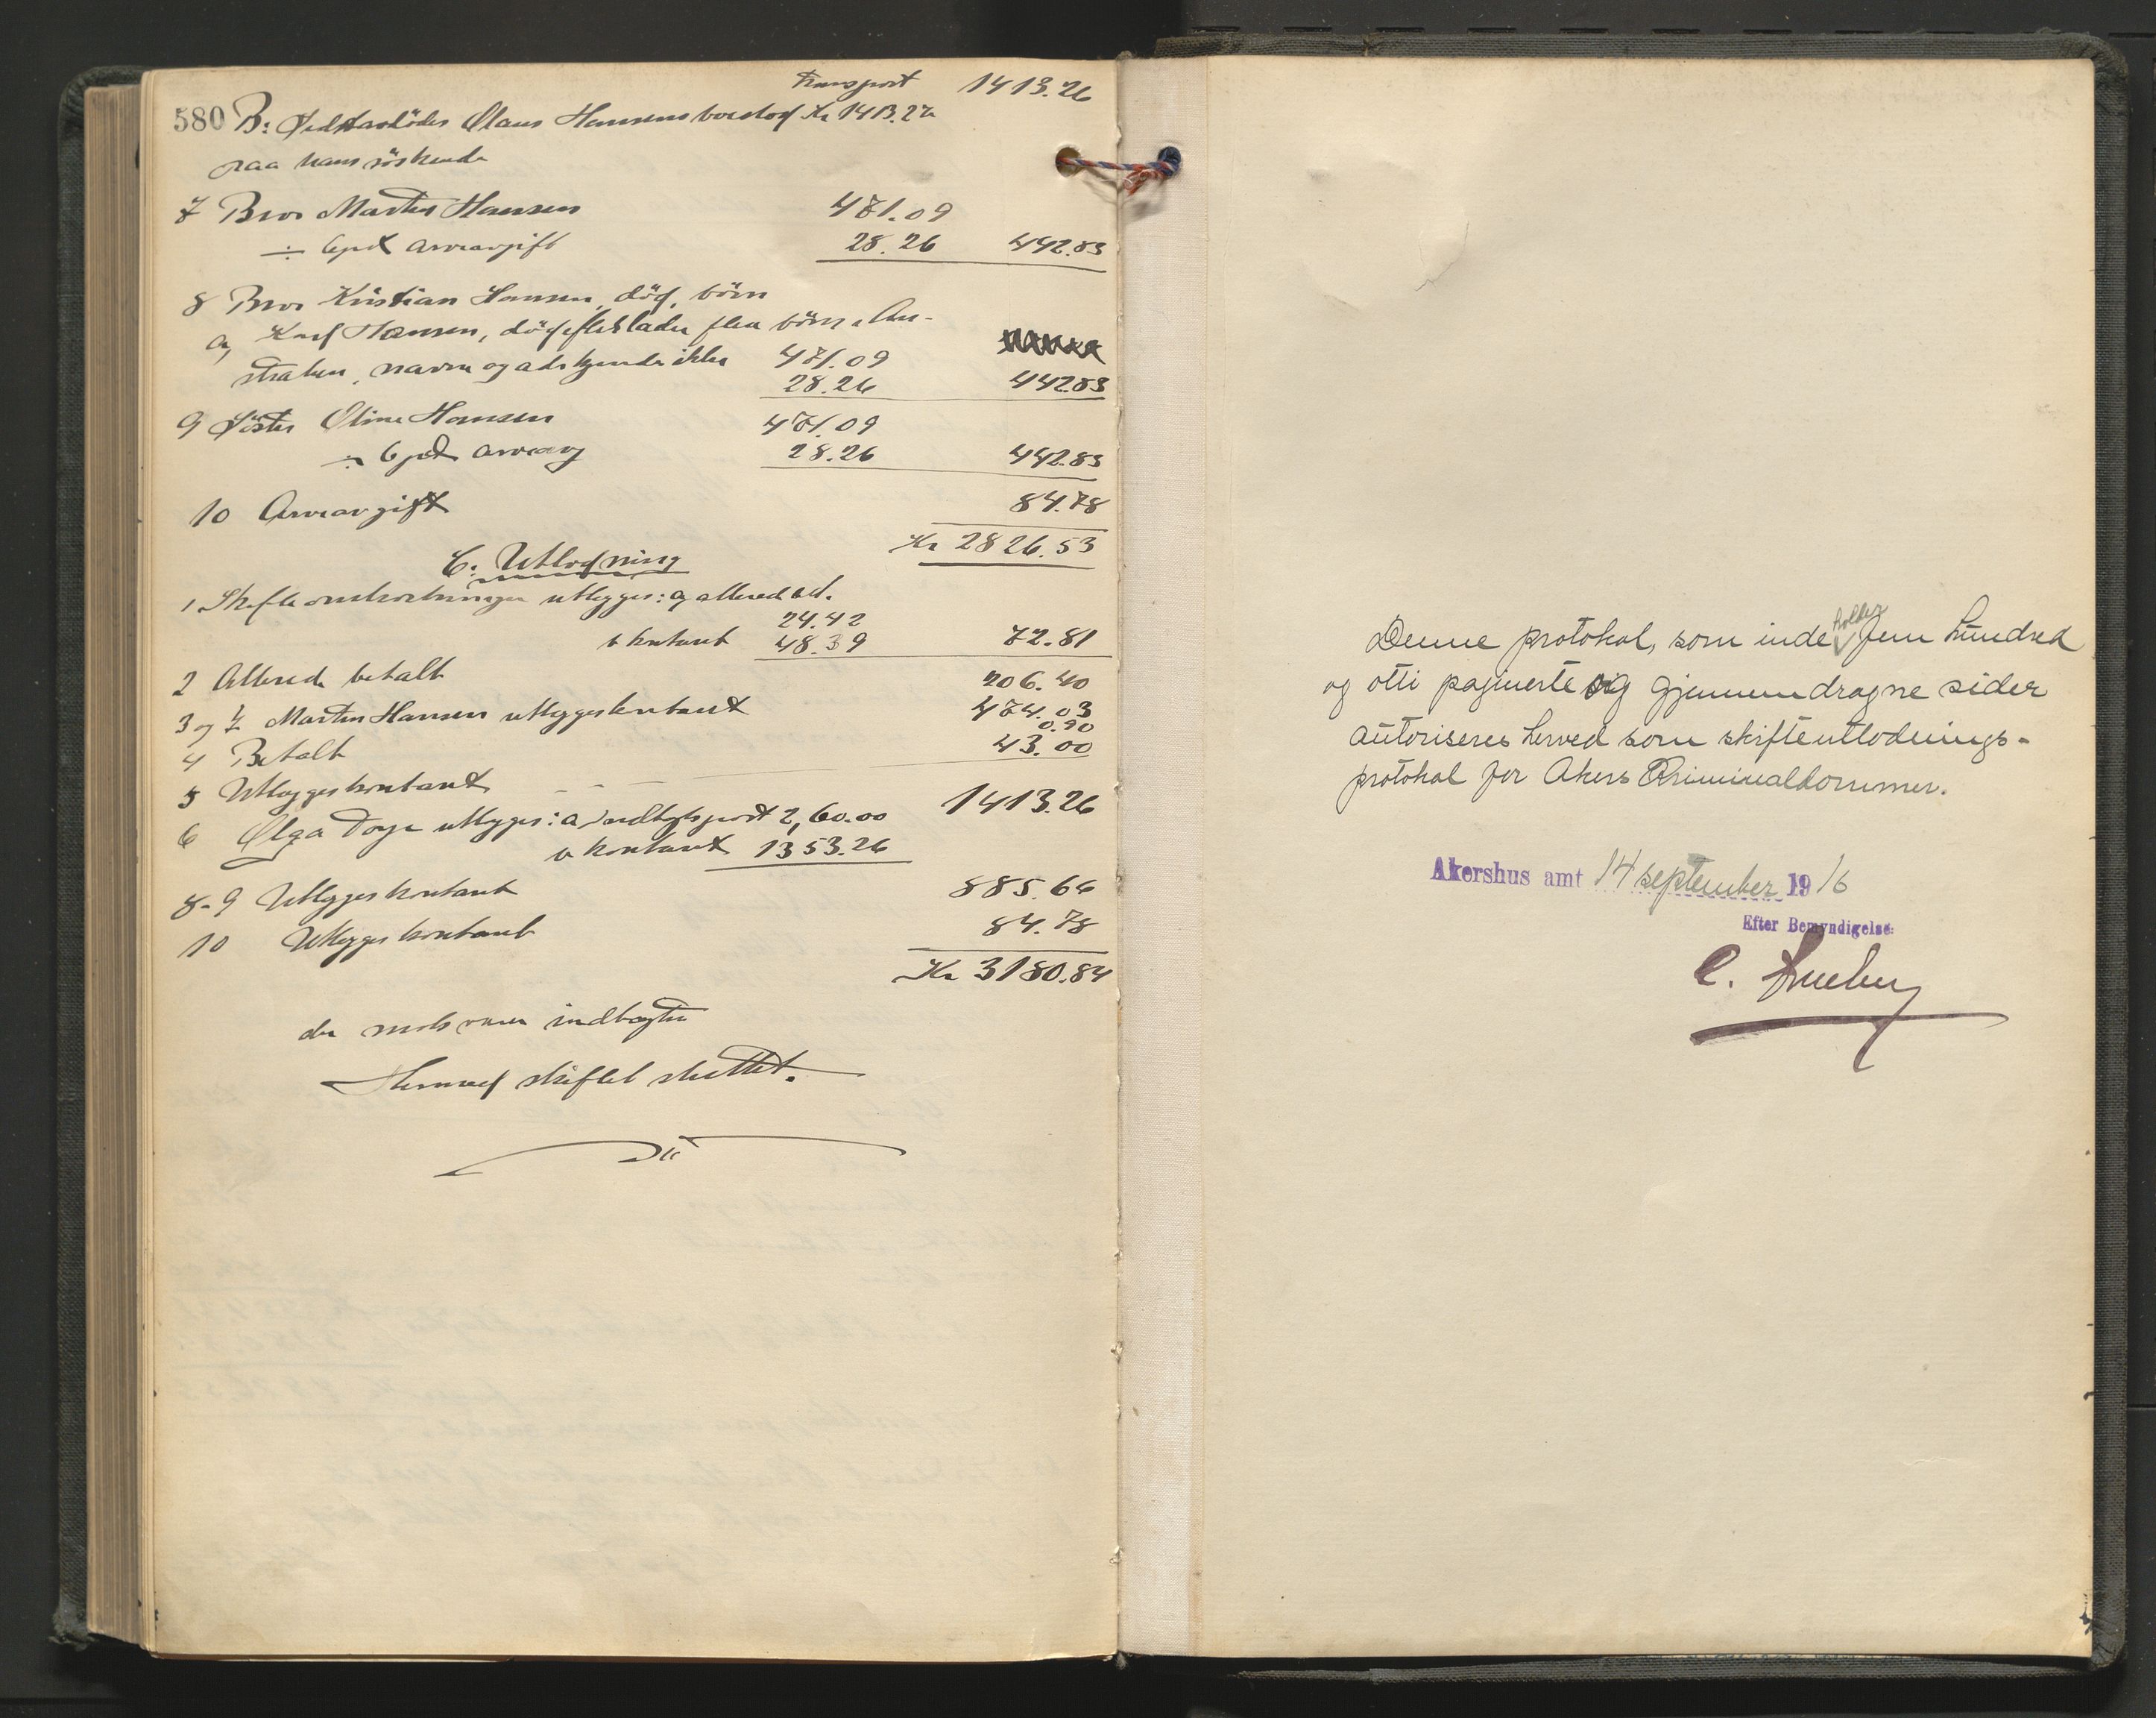 Transport 1413.26
580 B: Hansens boslod Kr 1413.27
paa hans søskende
7 Bror Martin Hansen 471.09
÷ 6 pct arveavgift 28.26 442.83
8 Bror Kristian Hansen, död, börn
a, Karl Hansen, död, efterlader flere börn i Au-
stralien, navn og adr kjendes ikke 471.09
28.26 442.83
9 Söster Oline Hansen 471.09
÷ 6 pct arveavg 28.26 442.83
10 Arveavgift 84.78
Kr 2826.53
C: Utlodning
1 Skifteomkostninger utlægges: a, allerede bet. 24.42
b kontant 48.39 72.81
2 Allerede betalt 206.40
3 og 7 Martin Hansen utlægges kontant 474.03
0.90
4 Betalt 43.00
5 Utlægges kontant - -
6 Olga utlægges: a indtægtspost 2, 60.00 1413.26
b kontant 1353.26
8-9 Utlægges kontant 885.66
10 Utlægges kontant 84.78
Kr 3180.84
der motsvarer indtægten
Hermed skiftet sluttet.
Denne protokol, som inde holder fem hundred
og otti paginerte og gjennemdragne sider
autoriseres herved som skifteutlodnings-
protokol for Akers Kriminaldommer.
Akershus amt 14 september 1916
Efter Bemyndigelse
C.